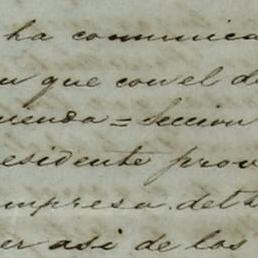 ha comunica
que con el de
uenda = Seccion
residente prov
mpresa del
er asi de los